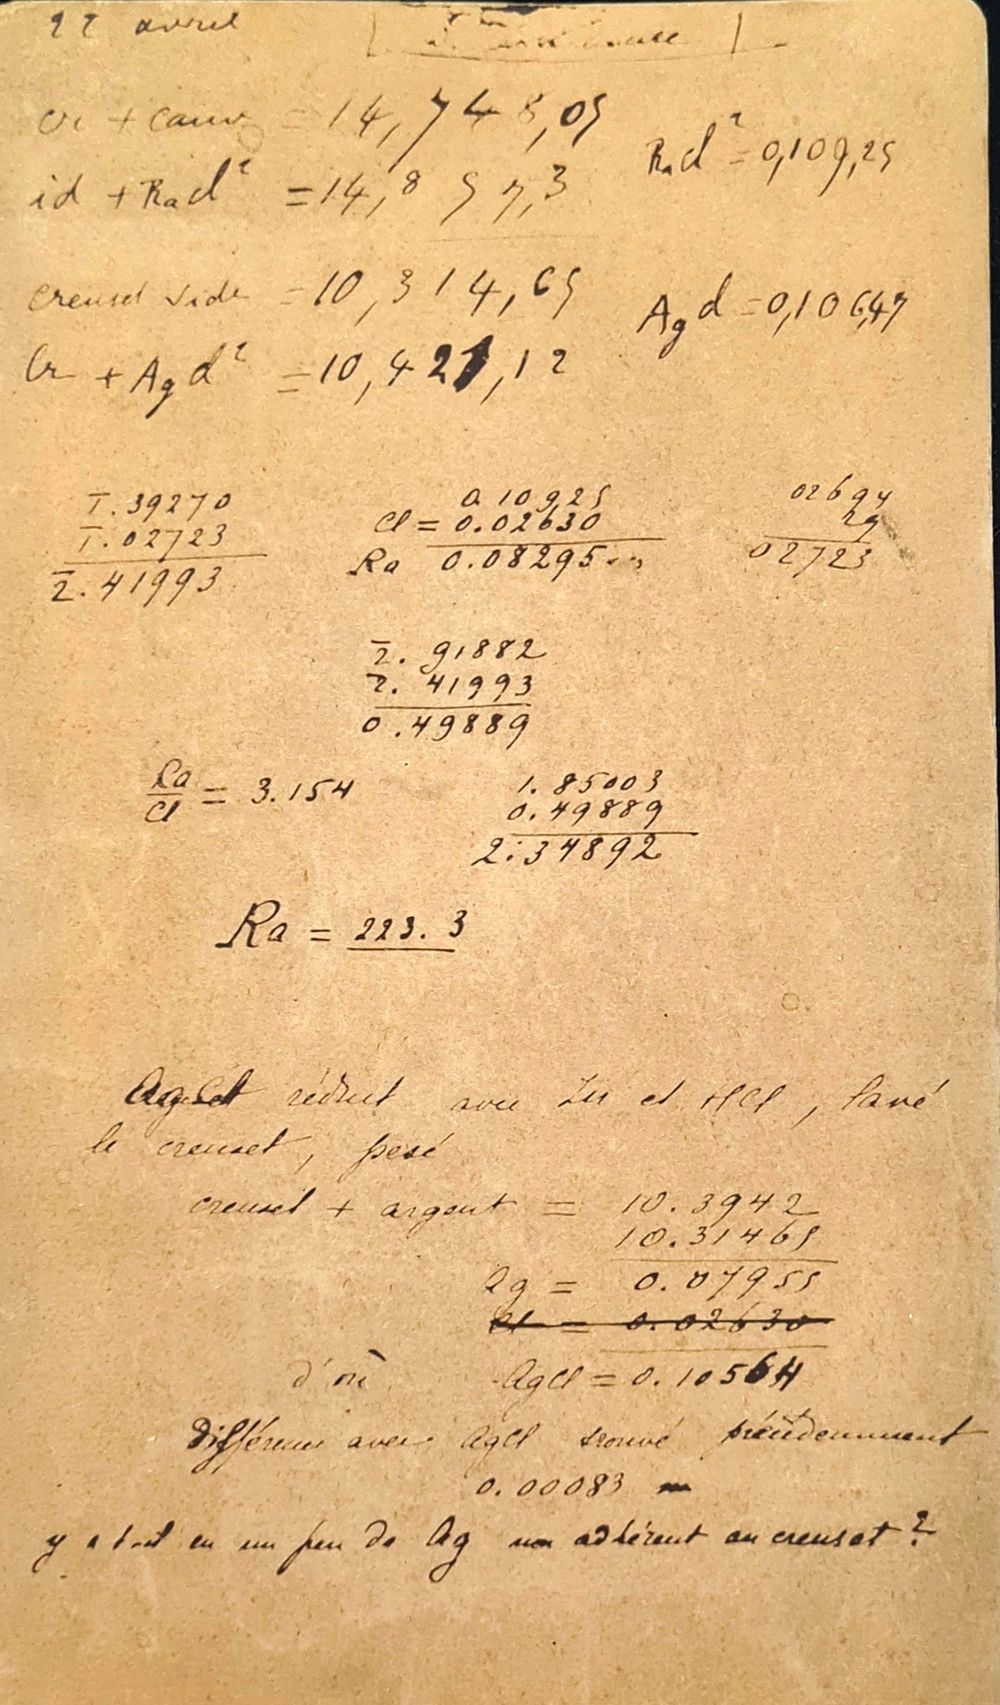 22 avril
cr + couv = 14,748,05
Rad² = 0,109,25
id + Rad² = 14,857,3
creuset vide = 10,314,65
Agd = 0,106,47
Cr + Agd² = 10,421,12
1̅.39270
1̅.02723
2̅.41993
0.10925
Cl = 0.02630
Ra 0.08295
02694
29
02723
2̅.91882
2̅.41993
0.49889
Ra/Cl = 3.154
1.85003
0.49889
2.34892
Ra = 223.3
AgCl réduit avec Zn et HCl, lavé
le creuset, pesé
creuset + argent = 10.3942
10.31465
Ag = 0.07955
Cl = 0.02630
d'où AgCl = 0.10564
Différence avec AgCl trouvé précédemment
0.00083
y a t-il eu un peu de Ag non adhérent au creuset ?